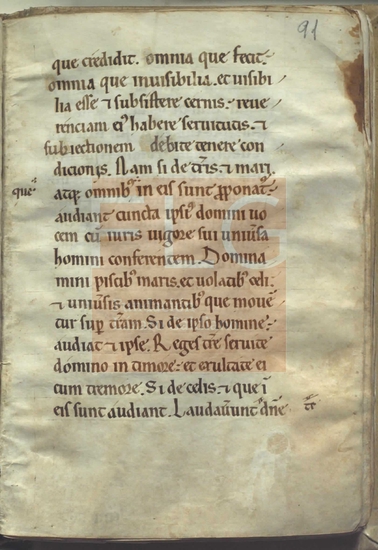 91
que credidit. omnia que fecit.
omnia que inuisibilia. et uisibi
lia esse ⁊ subsistere cernis. reue
renciam ei' habere seruitutis. ⁊
subiectionem debite tenere con
dicionis. Nam si de t̄ris. ⁊ mari.
que atq; omnib' in eis sunt
audiant cuncta ipsi' domini uo
cem cū iuris uigore sui uniu̾sa
homini conferentem. Domina
mini piscib' maris. et uolatib' celi.
⁊ uniu̾sis animantib' que moue
tur sup̄ t̄ram. Si de ipso homine.
audiat ⁊ ipse. Reges t̄re seruite
domino in timore. et exultate ei
cum tremore. Si de celis. ⁊ que ī
eis sunt audiant. Laudau̾unt dn̄e